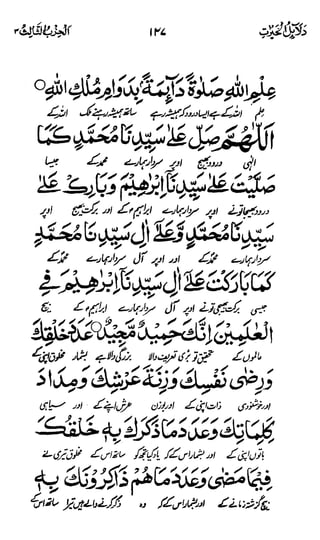 دَلَائِلُ الْخَيْرَاتِ ١٢٧ اَلْحِزْبُ الثَّالِثُ ٣
عِلْمِ اللهِ صَلٰوةً دَآئِمَةً بِدَوَامِ مُلْكِ اللهِ ○
علم اللہ کے ہے ایسا درود کہ ہمیشہ رہے ساتھ ہمیشہ رہنے ملک اللہ کے
اَللّٰهُمَّ صَلِّ عَلٰى سَيِّدِنَا مُحَمَّدٍ كَمَا
الٰہی درود بھیج اوپر سردار ہمارے محمد کے جیسا
صَلَّيْتَ عَلٰى سَيِّدِنَآ اِبْرٰهِيْمَ وَبَارِكْ عَلٰى
درود بھیجا تونے اوپر سردار ہمارے ابراہیم کے اور برکت بھیج اوپر
سَيِّدِنَا مُحَمَّدٍ وَّعَلٰٓى اٰلِ سَيِّدِنَا مُحَمَّدٍ
سردار ہمارے محمد کے اور اوپر آل سردار ہمارے محمد کے
كَمَا بَارَكْتَ عَلٰٓى اٰلِ سَيِّدِنَآ اِبْرٰهِيْمَ فِى
جیسی برکت بھیجی تونے اوپر آل سردار ہمارے ابراہیم کے بیچ
الْعٰلَمِيْنَ اِنَّكَ حَمِيْدٌ مَّجِيْدٌ ○ عَدَدَ خَلْقِكَ
عالموں کے تحقیق تو ہی تعریف والا بزرگی والا ہے بشمار مخلوق اپنی کے
وَرِضٰى نَفْسِكَ وَزِنَةَ عَرْشِكَ وَمِدَادَ
اور خوشنودی ذات اپنی کے اور بوزن عرش اپنے کے اور سیاہی
كَلِمَاتِكَ وَعَدَدَ مَا ذَكَرَكَ بِهٖ خَلْقُكَ
باتوں اپنی کے اور بشمار اس کے کہ یاد کیا تجھ کو ساتھ اس کے مخلوق تیری نے
فِيْمَا مَضٰى وَعَدَدَ مَا هُمْ ذَاكِرُوْنَكَ بِهٖ
بیچ گزشتہ زمانے کے اور بشمار اس کے کہ وہ ذکر کرنے والے ہیں تیرا ساتھ اس کے